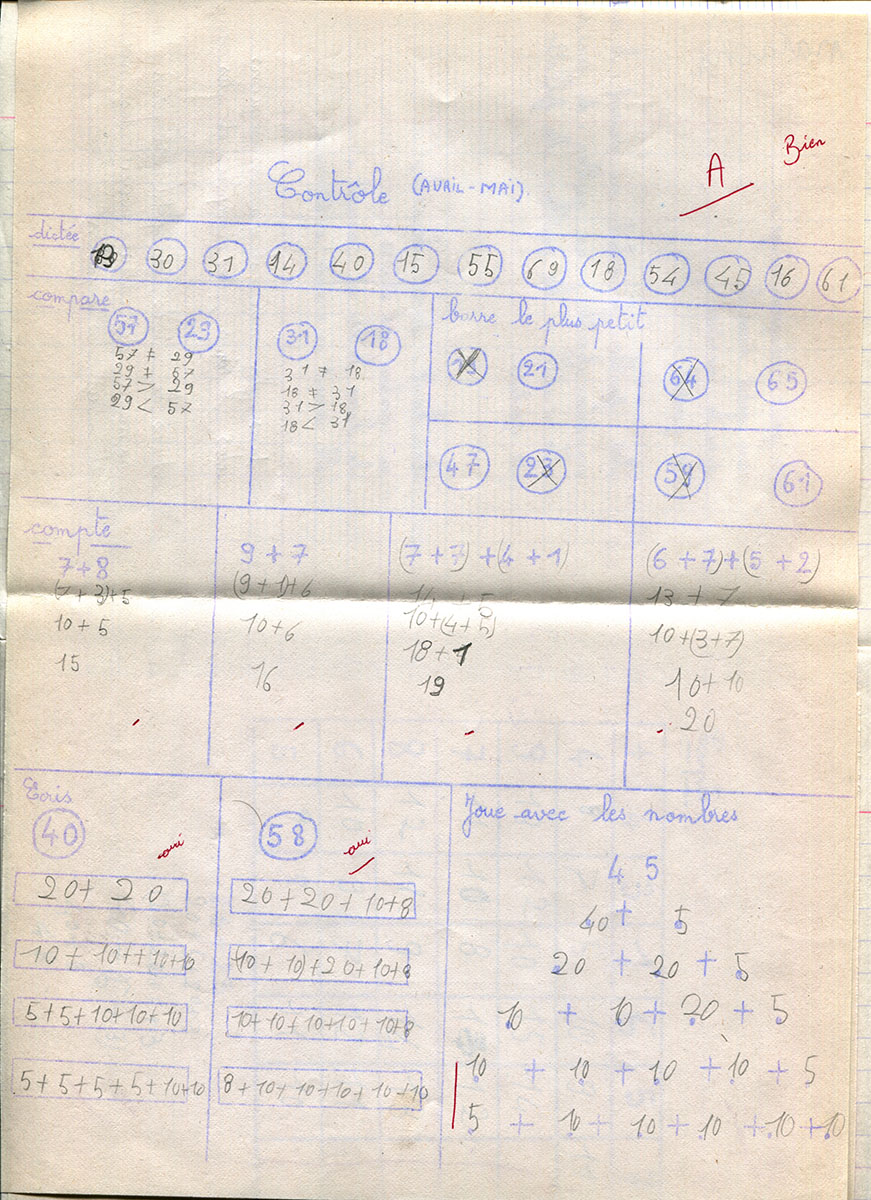 Bien
A
Contrôle (AVRIL-MAI)
dictée
30 31 14 40 15 55 69 18 54 45 16 61
compare
57 29
57 ≠ 29
29 ≠ 57
57 > 29
29 < 57
31 18
31 ≠ 18
18 ≠ 31
31 > 18
18 < 31
barre le plus petit
21
64 65
47 23
61
compte
7+8
(7+3)+5
10+5
15
9+7
(9+1)+6
10+6
16
(7+7)+(4+1)
14+5
10+(4+5)
18+1
19
(6+7)+(5+2)
13+7
10+(3+7)
10+10
20
Ecris
40
oui
20+20
10+10++10+10
5+5+10+10+10
5+5+5+5+10+10
58
oui
20+20+10+8
(10+10)+20+10+8
10+10+10+10+10+8
8+10+10+10+10+10
Joue avec les nombres
45
40+5
20+20+5
10+10+20+5
10+10+10+10+5
5+10+10+10+10+10